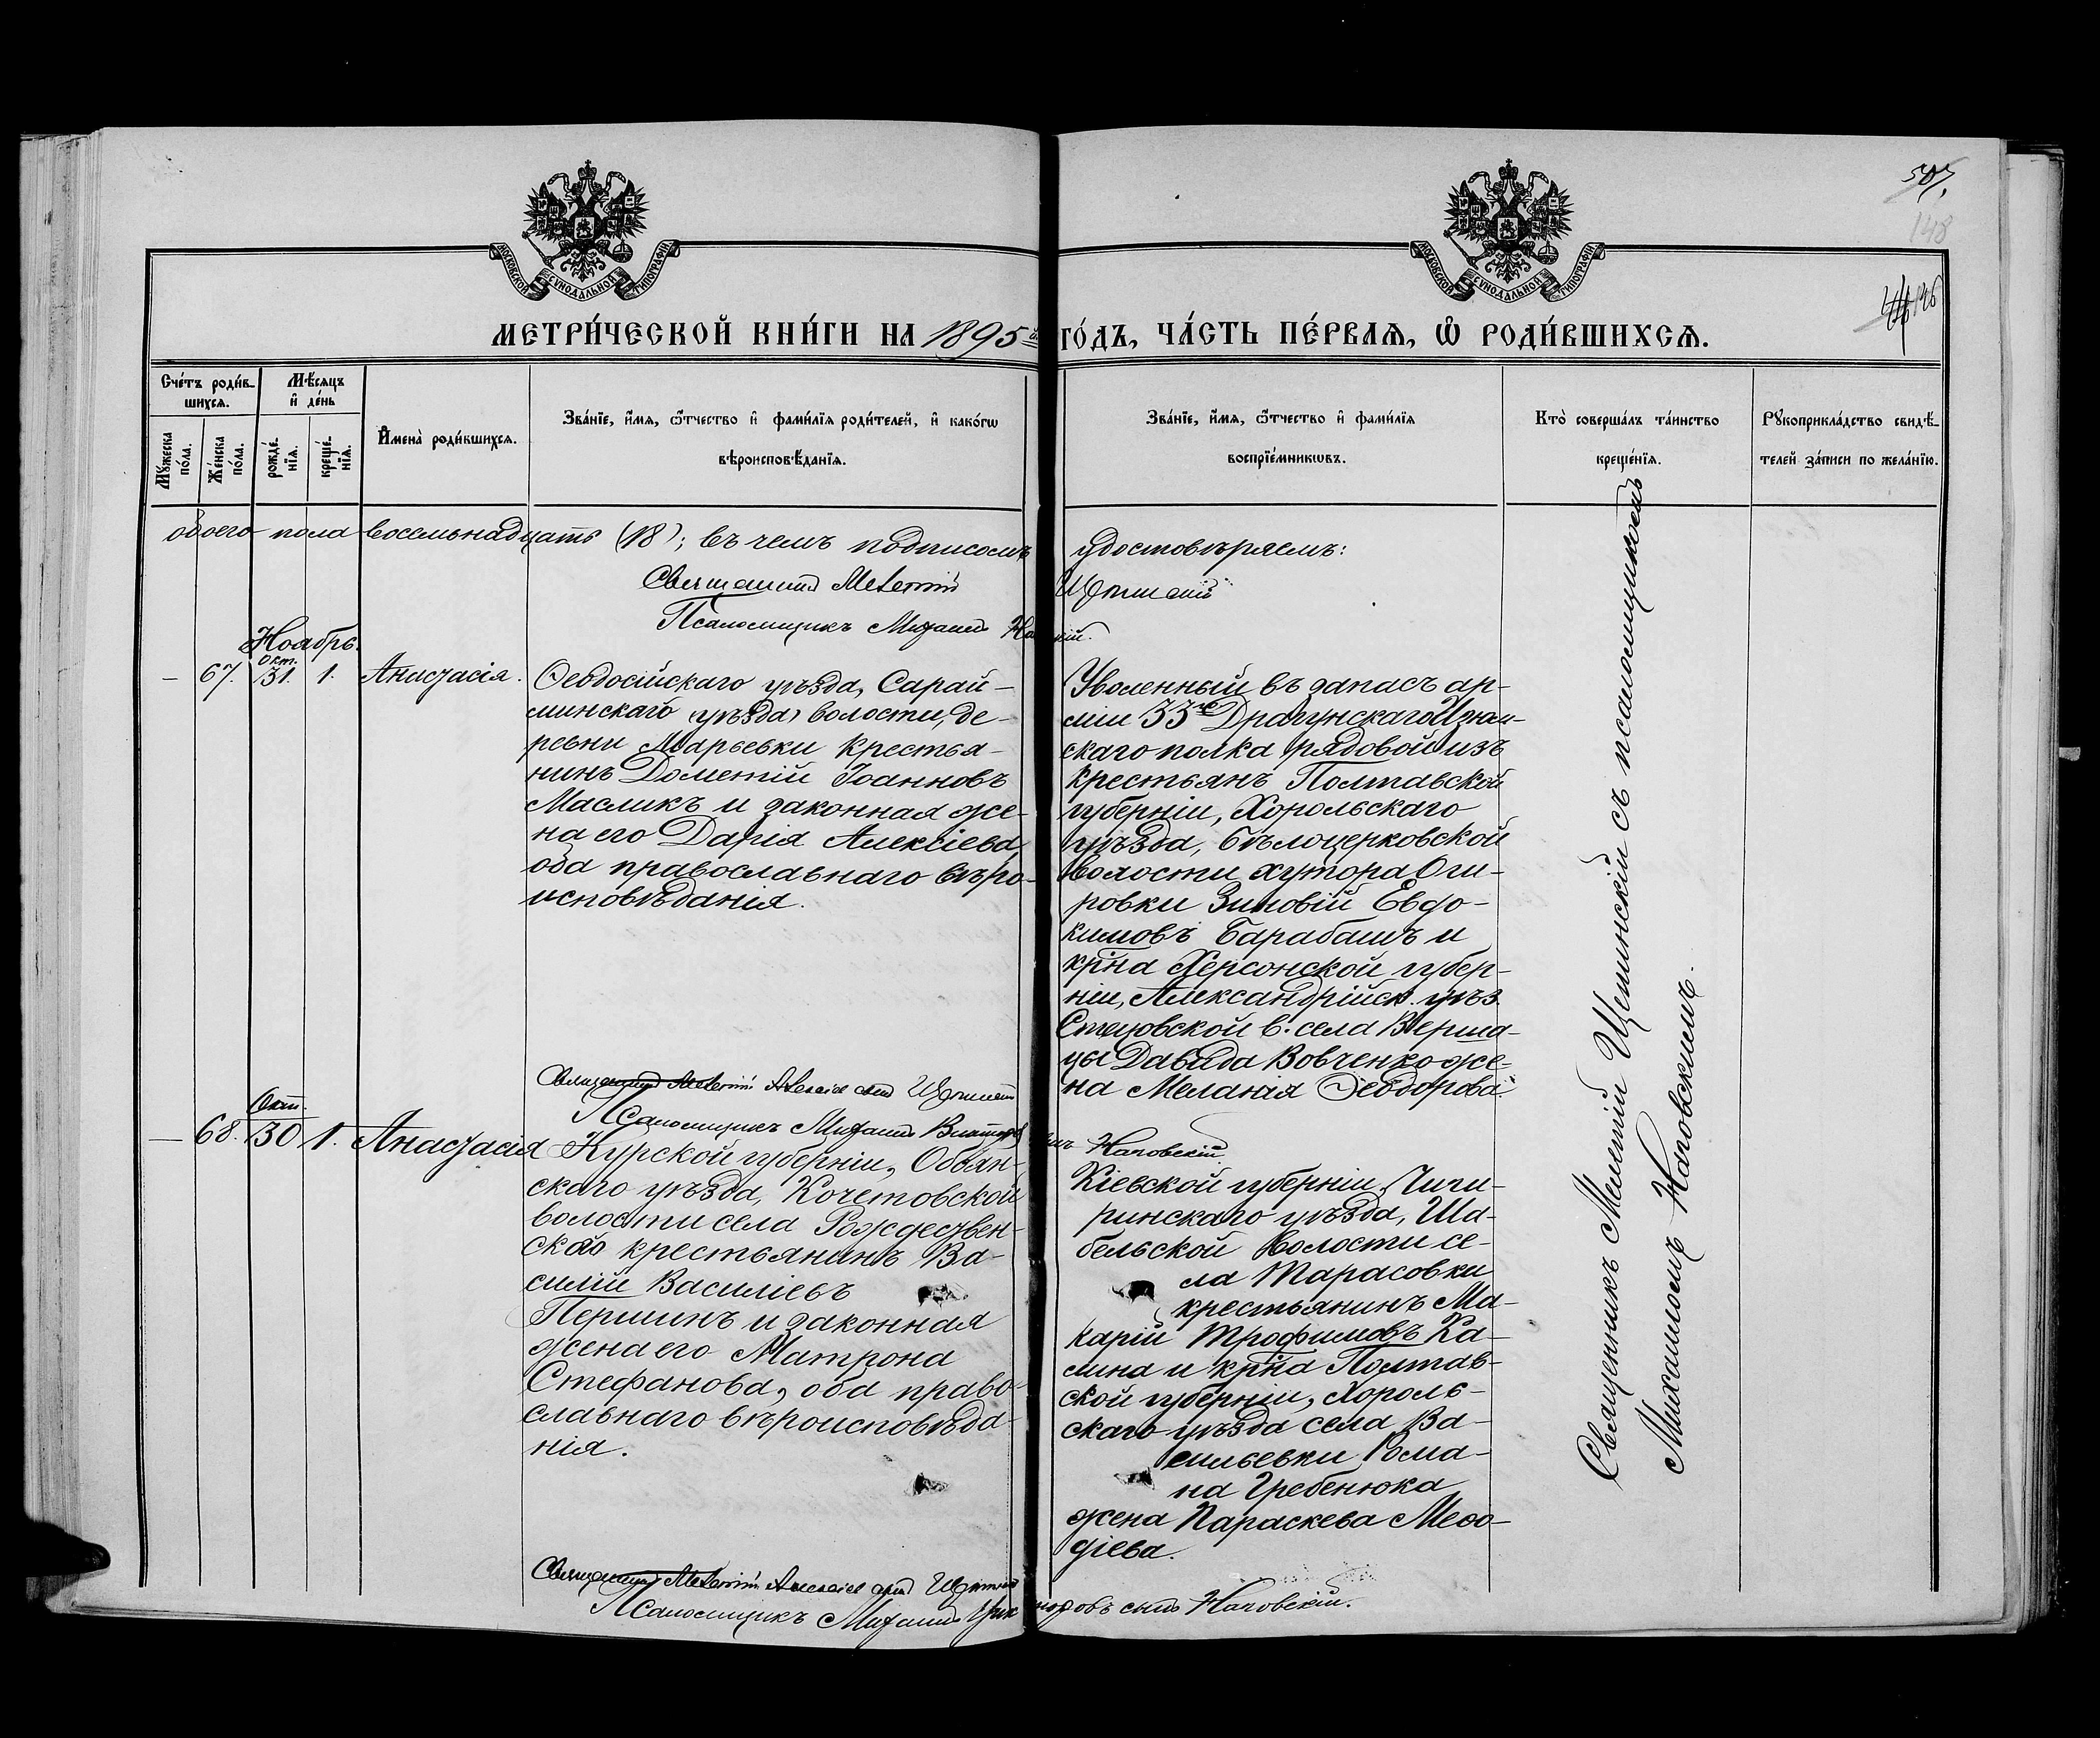 507.
148
146
МОСКОВСКОЙ СУНОДАЛЬНОЙ ТИПОГРАФІИ
МОСКОВСКОЙ СУНОДАЛЬНОЙ ТИПОГРАФІИ
МЕТРИ́ЧЕСКОЙ КНИ́ГИ НА 1895й ГО́ДЪ, ЧА́СТЬ ПЕ́РВАЯ, Ѿ РОДИ́ВШИХСЯ.
Сче́тъ роди́в-
шихся.
Мꙋ́жеска
по́ла.
Же́нска
по́ла.
Мѣ́сяцъ
и҆ де́нь
рожде́-
нїя.
креще́-
нїя.
И҆мена̀ роди́вшихся.
Зва́нїе, и҆́мя, ѻ҆́тчество и҆ фами́лїя роди́телей, и҆ како́гѡ
вѣроисповѣ́данїя.
Зва́нїе, и҆́мя, ѻ҆́тчество и҆ фами́лїя
воспрїе́мникѡвъ.
Кто̀ соверша́лъ та́инство
креще́нїя.
Рꙋкоприкла́дство свидѣ́-
телей за́писи по жела́нїю.
обоего пола восемьнадцать (18); въ чемъ подписомъ удостовѣряемъ:
Священникъ Мелетій Щепинскій
Псаломщикъ Михаилъ
Ноябрь.
— 67. Окт. 31. 1. Анастасія.
Ѳеодосійскаго уѣзда, Сарай-
минскаго (уѣзда) волости, де-
ревни Марьевки крестья-
нинъ Дометій Іоанновъ
Масликъ и законная же-
на его Дарія Алексіева,
оба православнаго вѣро-
исповѣданія.
Уволенный въ запасъ ар-
міи 33го Драгунскаго Изюм-
скаго полка рядовой изъ
крестьянъ Полтавской
губерніи, Хорольскаго
уѣзда, Бѣлоцерковской
волости хутора Оги-
ровки Зиновій Евдо-
кимовъ Барабашъ и
кр̃на Херсонской губер-
ніи, Александрійск. уѣз.
Стецовской в. села Верша-
цы Давида Вовченко же-
на Меланія Ѳеодорова.
Священникъ Мелетій Алексіевъ сынъ Щепинскій
Псаломщикъ Михаилъ Викторовъ сынъ Наговскій
— 68. Окт. 30 1. Анастасія
Курской губерніи, Обоян-
скаго уѣзда, Кочетовской
волости села Рождествен-
скаго крестьянинъ Ва-
силій Василіевъ
Першинъ и законная
жена его Матрона
Стефанова, оба право-
славнаго вѣроисповѣда-
нія.
Кіевской губерніи, Чиги-
ринскаго уѣзда, Ша-
бельской волости се-
ла Тарасовки
крестьянинъ Ма-
карій Трофимовъ Ка-
лина и кр̃на Полтав-
ской губерніи, Хороль-
скаго уѣзда села Ва-
сильевки Рома-
на Гребенюка
жена Параскева Меѳо-
діева.
Священникъ Мелетій Алексіевъ сынъ Щепинскій
Псаломщикъ Михаилъ Викторовъ сынъ Наговскій.
Священникъ Мелетій Щепинскій съ псаломщикомъ
Михаиломъ Наговскимъ.